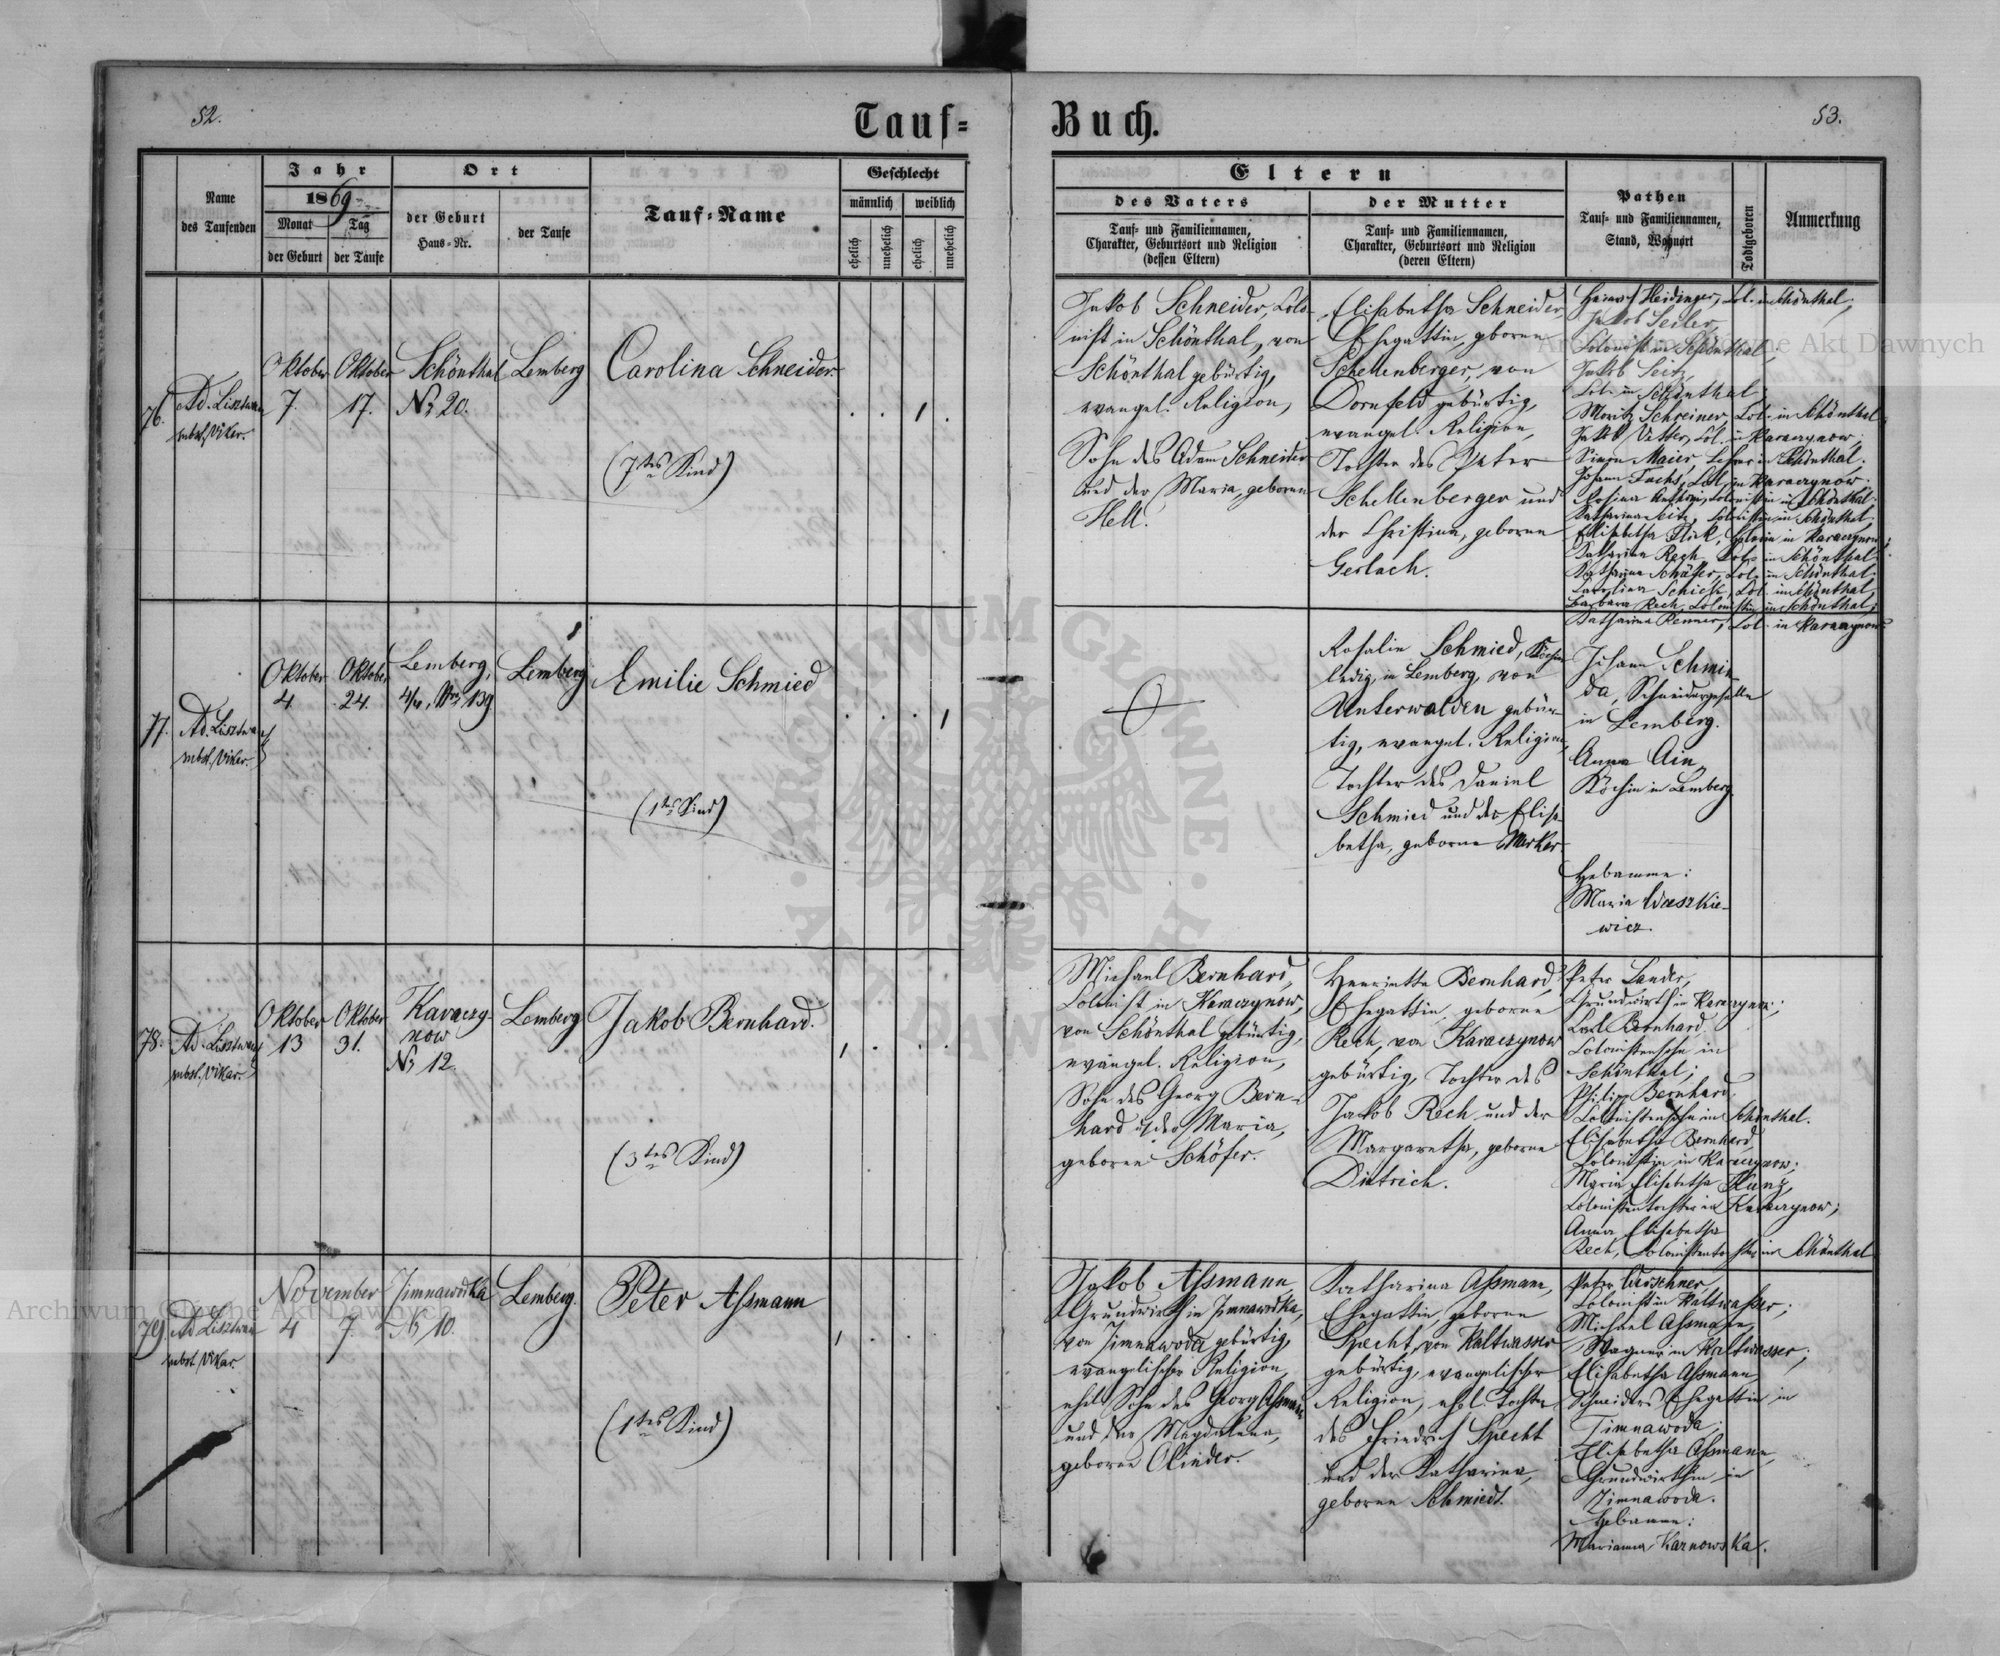 52.
Tauf-
Buch.
53.
Name
des Taufenden
Jahr
1869
Monat
Tag
der Geburt
der Taufe
Ort
der Geburt
Haus-Nr.
der Taufe
Tauf-Name
Geschlecht
männlich
weiblich
ehelich
unehelich
ehelich
unehelich
Eltern
des Vaters
Tauf- und Familiennamen,
Charakter, Geburtsort und Religion
(dessen Eltern)
der Mutter
Tauf- und Familiennamen,
Charakter, Geburtsort und Religion
(deren Eltern)
Pathen
Tauf- und Familiennamen,
Stand, Wohnort
Todtgeboren
Anmerkung
76.
Ad. Lisztwan
subst. Vikar.
Oktober
7.
Oktober
17.
Schönthal
No 20.
Lemberg
Carolina Schneider
(7tes Kind)
Jakob Schneider, Colo-
nist in Schönthal, von
Schönthal gebürtig,
evangel. Religion,
Sohn des Adam Schneider
und der Maria, geborene
Hell.
Elisabetha Schneider
Ehegattin, geborene
Schellenberger, von
Dornfeld gebürtig,
evangel. Religion,
Tochter des Peter
Schellenberger und
der Christina, geborne
Gerlach.
Heidinger, Col. in Schönthal,
Jakob Seiler,
Colonist in Schönthal,
Jakob Seitz,
Col. in Schönthal,
Moritz Schreiner, Col. in Schönthal,
Jakob Vetter, Col. in Karaczynow,
Simon Maier, Lehrer in Schönthal,
Johann Fuchs, Col. in Karaczynow.
Rosina Colonistin in Schönthal.
Katharina Seitz, Colonistin in Schönthal.
Elisabetha Flick, in Karaczynow;
Katharina Rech, Col. in Schönthal.
Katharina Schäffer, Col. in Schönthal.
Carolina Schick, Col. in Schönthal,
Barbara Rech, Colonistin in Schönthal;
Katharina Renner, Col. in Karaczynow.
77.
Ad. Lisztwan
subst. Vikar.
Oktober
4
Oktober
24.
Lemberg,
4/4, Nro 139
Lemberg
Emilie Schmied
(1tes Kind)
Rosalie Schmied, Köchin
ledig, in Lemberg, von
Unterwalden gebür-
tig, evangel. Religion,
Tochter des Daniel
Schmied und der Elisa-
betha, geborne Merker
Johann Schmin-
da, Schneidergeselle
in Lemberg.
Anna Ain,
Köchin in Lemberg.
Hebamme:
Maria Waszkie-
wicz.
78.
Ad. Lisztwan
subst. Vikar.
Oktober
13
Oktober
31.
Karaczy-
now
No 12.
Lemberg
Jakob Bernhard.
(3tes Kind)
Michael Bernhard,
Colonist in Karaczynow,
von Schönthal gebürtig,
evangel. Religion,
Sohn des Georg Bern-
hard u. der Maria,
geborene Schöfer.
Henriette Bernhard,
Ehegattin, geborene
Rech, von Karaczynow
gebürtig, Tochter des
Jakob Rech und der
Margaretha, geborne
Dietrich.
Peter Sander,
Grundwirth in Karaczynow;
Carl Bernhard,
Colonistensohn in
Schönthal;
Philipp Bernhard,
Colonistensohn in Schönthal.
Elisabetha Bernhard,
Colonistin in Karaczynow;
Maria Elisabetha Kunz,
Colonistentochter in Karaczynow;
Anna Elisabetha
Rech, Colonistentochter in Schönthal
79.
Ad. Lisztwan
subst. Vikar.
November
4
7.
Zimnawodka
No 10.
Lemberg.
Peter Assmann
(1tes Kind)
Jakob Assmann,
Grundwirth in Zimnawodka,
von Zimnawoda gebürtig,
evangelischer Religion,
ehel. Sohn des Georg Assmann
und der Magdalena,
geborne Olinder.
Katharina Assmann,
Ehegattin, geborne
Specht, von Kaltwasser
gebürtig, evangelischer
Religion, ehel. Tochter
des Friedrich Specht
und der Katharina,
geborne Schmiedt.
Peter Wöschner,
Colonist in Kaltwasser;
Michael Assmann,
Wagner in Kaltwasser;
Elisabetha Assmann,
Schneiders Ehegattin in
Zimnawoda;
Elisabetha Assmann,
Grundwirthin in
Zimnawoda.
Hebamme:
Marianna Karnowska.
Archiwum Główne Akt Dawnych
Archiwum Główne Akt Dawnych
ARCHIWUM GŁÓWNE AKT DAWNYCH